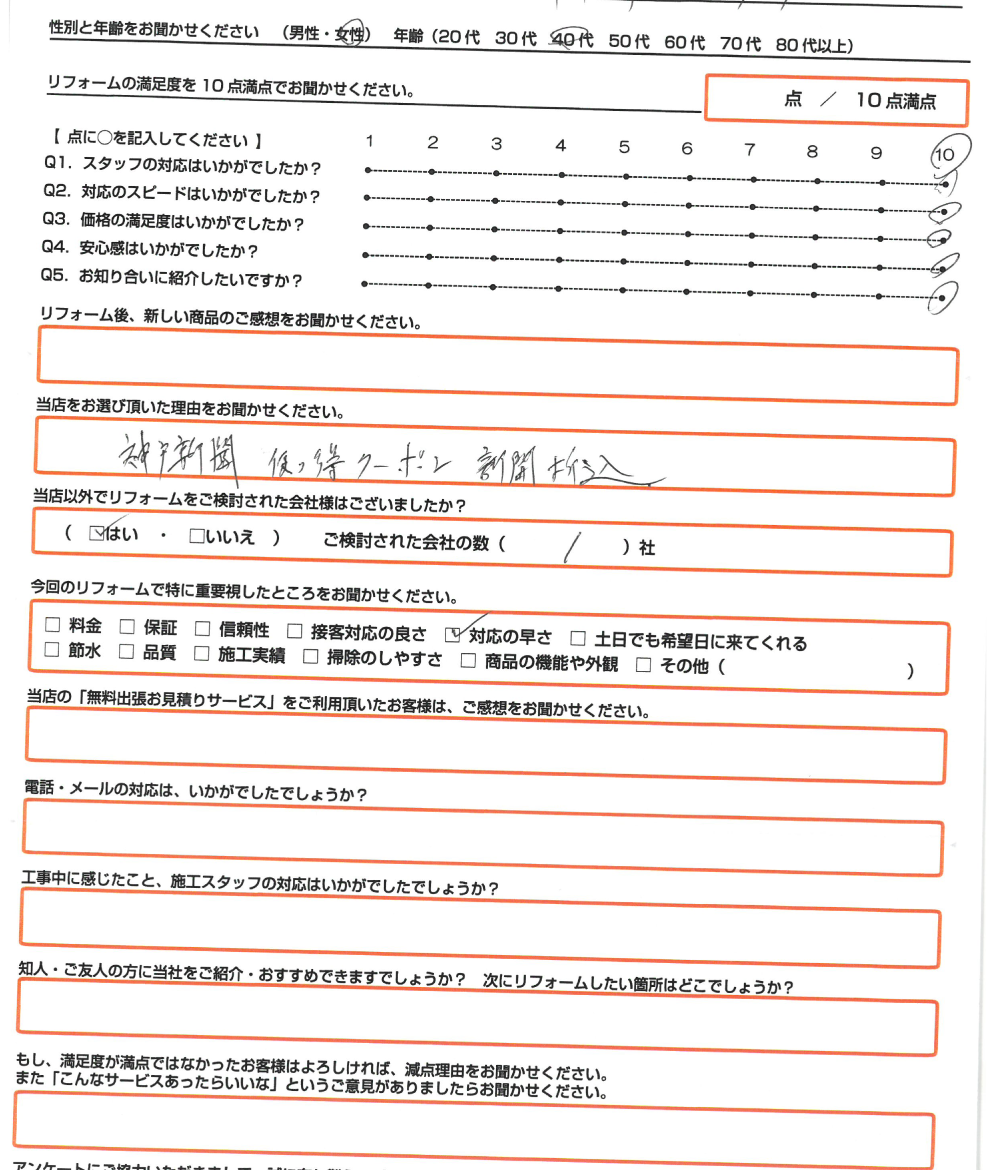 性別と年齢をお聞かせください （男性・女性） 年齢（20代 30代 40代 50代 60代 70代 80代以上）
リフォームの満足度を10点満点でお聞かせください。
点 ／ 10点満点
【 点に○を記入してください 】 1 2 3 4 5 6 7 8 9 10
Q1. スタッフの対応はいかがでしたか？
Q2. 対応のスピードはいかがでしたか？
Q3. 価格の満足度はいかがでしたか？
Q4. 安心感はいかがでしたか？
Q5. お知り合いに紹介したいですか？
リフォーム後、新しい商品のご感想をお聞かせください。
当店をお選び頂いた理由をお聞かせください。
神戸新聞 使っ得クーポン 新聞折込
当店以外でリフォームをご検討された会社様はございましたか？
（ ☑はい ・ □いいえ ） ご検討された会社の数（ / ）社
今回のリフォームで特に重要視したところをお聞かせください。
□ 料金 □ 保証 □ 信頼性 □ 接客対応の良さ ☑ 対応の早さ □ 土日でも希望日に来てくれる
□ 節水 □ 品質 □ 施工実績 □ 掃除のしやすさ □ 商品の機能や外観 □ その他（ ）
当店の「無料出張お見積りサービス」をご利用頂いたお客様は、ご感想をお聞かせください。
電話・メールの対応は、いかがでしたでしょうか？
工事中に感じたこと、施工スタッフの対応はいかがでしたでしょうか？
知人・ご友人の方に当社をご紹介・おすすめできますでしょうか？ 次にリフォームしたい箇所はどこでしょうか？
もし、満足度が満点ではなかったお客様はよろしければ、減点理由をお聞かせください。
また「こんなサービスあったらいいな」というご意見がありましたらお聞かせください。